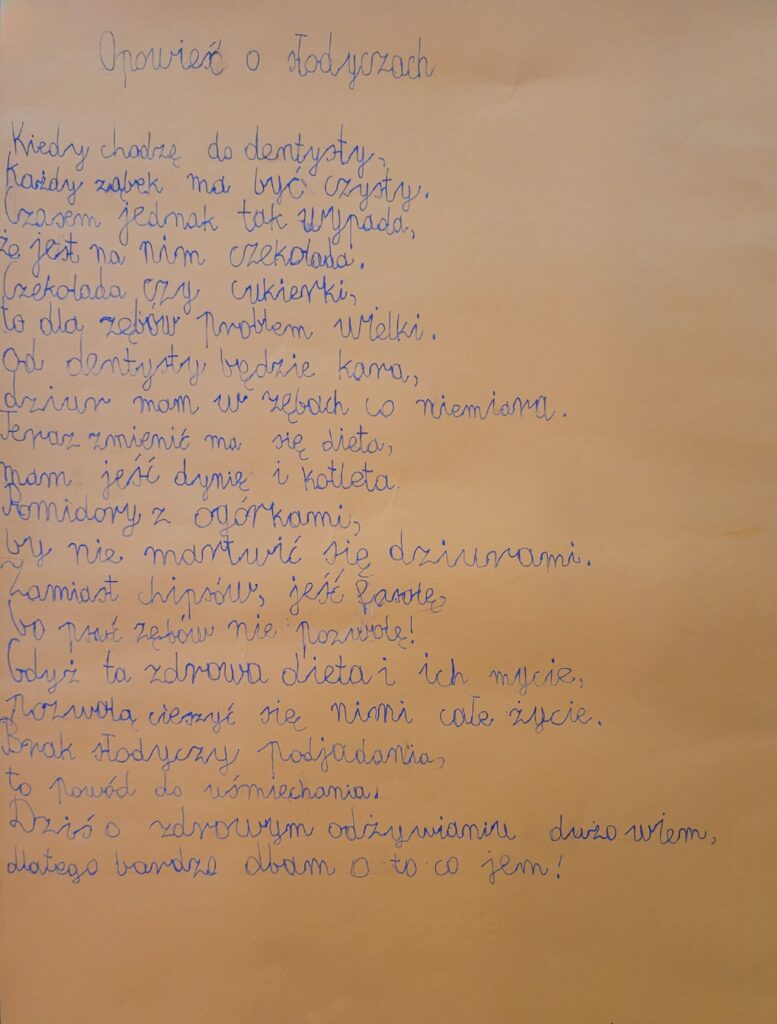 Opowieść o słodyczach
Kiedy chodzę do dentysty,
Każdy ząbek ma być czysty.
Czasem jednak tak wypada,
że jest na nim czekolada.
Czekolada czy cukierki,
to dla zębów problem wielki.
Od dentysty będzie kara,
dziur mam w zębach co niemiara.
Teraz zmienić ma się dieta,
mam jeść dynię i kotleta.
Pomidory z ogórkami,
by nie martwić się dziurami.
Zamiast chipsów, jeść fasolę,
bo psuć zębów nie pozwolę!
Gdyż ta zdrowa dieta i ich mycie,
pozwolą cieszyć się nimi całe życie.
Brak słodyczy podjadania,
to powód do uśmiechania.
Dziś o zdrowym odżywianiu dużo wiem,
dlatego bardzo dbam o to co jem!